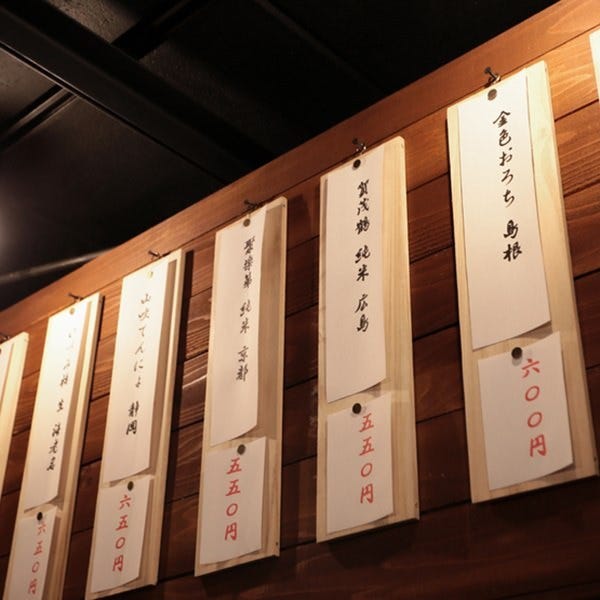 金色おろち 島根
六〇〇円
賀茂鶴 純米 広島
五五〇円
聚楽第 純米 京都
五五〇円
山吹てんにょ 静岡
六五〇円
生 海老名
六五〇円